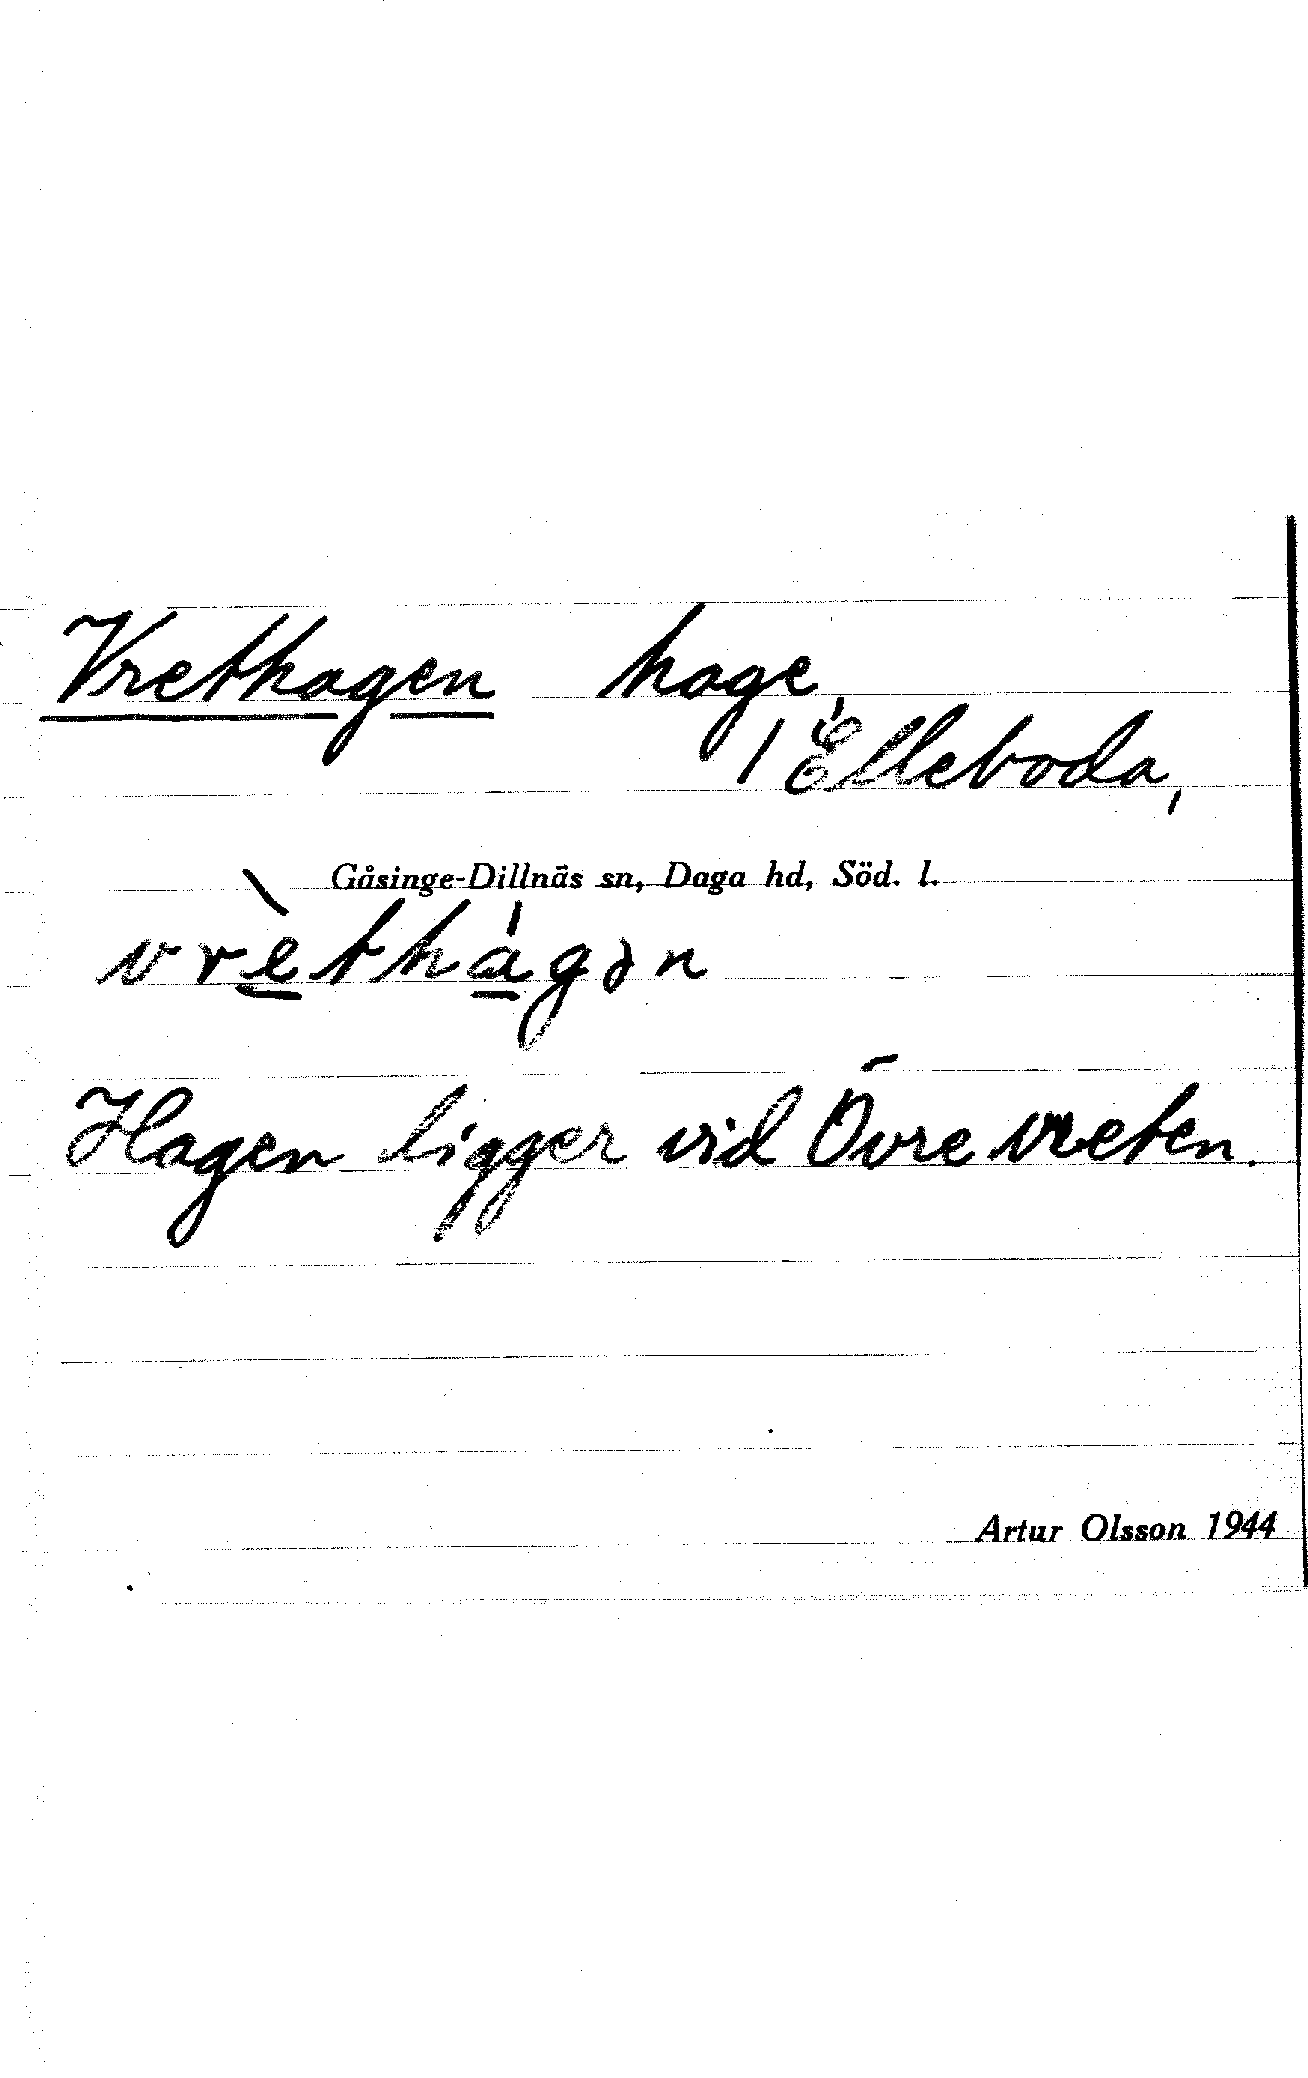 Vrethagen hage,
/ Elleboda,
Gåsinge-Dillnäs sn, Daga hd, Söd. l.
vrè̲thá̲gən
Hagen ligger vid Övre vreten.
Artur Olsson 1944